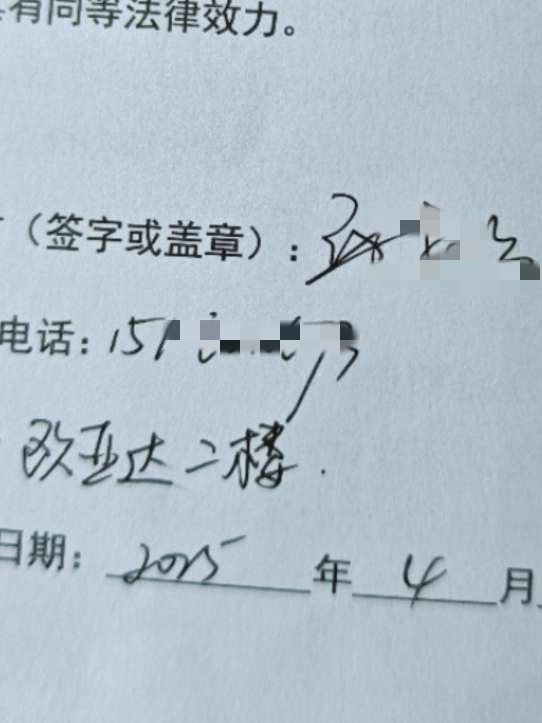 有同等法律效力。
（签字或盖章）：
电话：151
欧亚达二楼.
日期：2025年4月